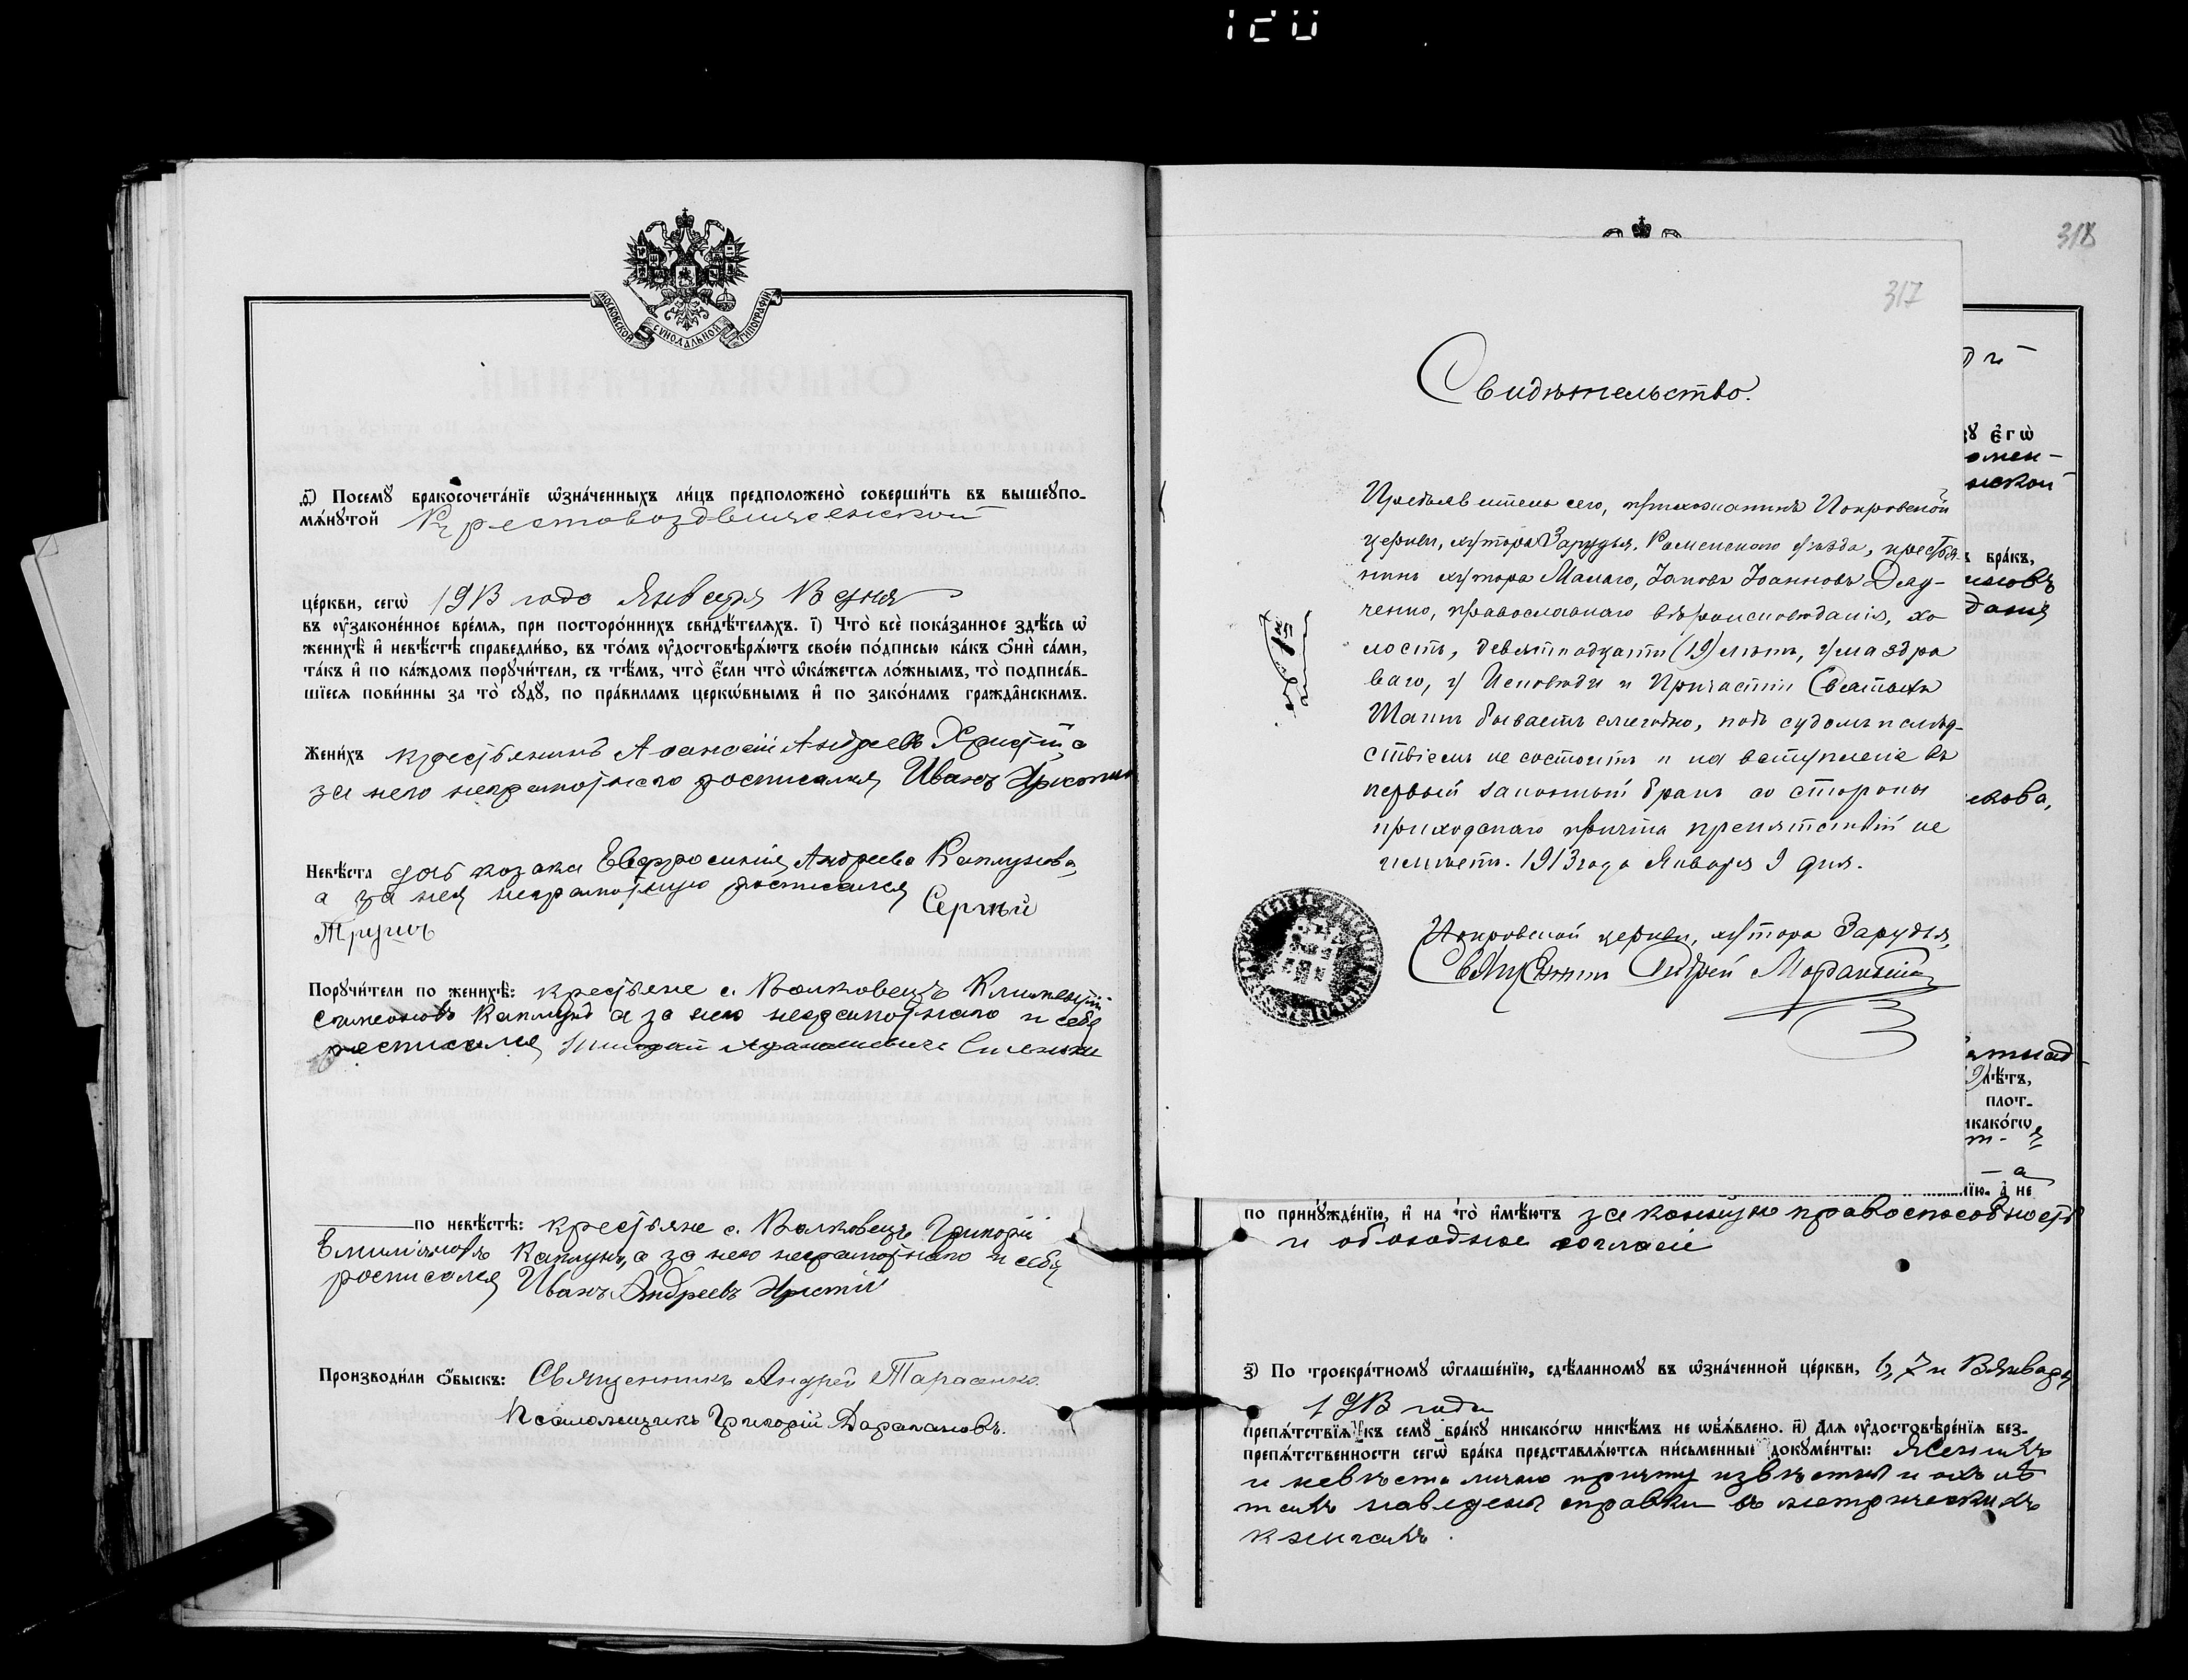 120
МОСКОВСКОЙ СѴНОДАЛЬНОЙ ТИПОГРАФІИ
ѳ҃) Посемꙋ̀ бракосочета́нїе ѡ҆зна́ченныхъ ли́цъ предположено̀ соверши́ть въ вышеꙋпо-
мѧ́нꙋтой Крестовоздвиженской
це́ркви, сегѡ̀ 1913 года Января 13 дня
въ ᲂу҆законе́нное вре́мѧ, при посторо́ннихъ свидѣ́телѧхъ. і҃) Что̀ всѐ пока́занное здѣ́сь ѡ҆
женихѣ̀ и҆ невѣ́стѣ справедли́во, въ то́мъ ᲂу҆достовѣрѧ́ютъ свое́ю по́дписью ка́къ ѻ҆нѝ са́ми,
та́къ и҆ по ка́ждомъ порꙋчи́тели, съ тѣ́мъ, что̀ є҆́сли что̀ ѡ҆ка́жется ло́жнымъ, то̀ подписа́в-
шїеся пови́нны за то̀ сꙋдꙋ̀, по пра́виламъ церко́внымъ и҆ по зако́намъ гражда́нскимъ.
Жени́хъ крестьянинъ Аѳанасій Андреевъ Христій, а
за него неграмотнаго росписался Иванъ
Невѣ́ста дочь козака Евфросинія Андреева Каплунова,
а за нея неграмотную росписался Сергѣй
Порꙋчи́тели по женихѣ̀: крестьяне с. Волковецъ Климентій
Симеоновъ Каплунъ а за него неграмотнаго и себя
росписался
по невѣ́стѣ: крестьяне с. Волковецъ Григорій
Емиліановъ Каплунъ, а за него неграмотнаго и себя
росписался Иванъ Андреевъ Христій
Производи́ли ѻ҆́быскъ: Священникъ Андрей Тарасенко
Псаломщикъ Григорій
318
317
Свидѣтельство.
Предъявитель сего, прихожанинъ Покровской
церкви, хутора Зарудья, Роменскаго уѣзда, крестья-
нинъ хутора Малаго, Іаковъ Іоанновъ
ченко, православнаго вѣроисповѣданія, хо
лостъ, девятнадцати (19) лѣтъ, ума здра
ваго, у Исповѣди и Причастія Святыхъ
Таинъ бываетъ ежегодно, подъ судомъ и слѣд-
ствіемъ не состоитъ и на вступленіе въ
первый законный бракъ со стороны
приходскаго причта препятствій не
имѣетъ. 1913 года Января 9 дня.
Покровской церкви, хутора Зарудья,
Священникъ Андрей
є҆гѡ̀
омен-
нской
бра́къ,
екова,
лѣ́тъ,
плот-
никако́гѡ
и҆ не
по принꙋжде́нїю, и҆ на то̀ и҆мѣ́ютъ законную правоспособность
и обоюдное согласіе
з҃) По троекра́тномꙋ ѡ҆глаше́нїю, сдѣ́ланномꙋ въ ѡ҆зна́ченной це́ркви, 6, 7 и 13 Января
1913 года
препѧ́тствїѧ къ семꙋ̀ бра́кꙋ никако́гѡ никѣ́мъ не ѡ҆б̾ѧ́влено. и҃) Для ᲂу҆достовѣре́нїѧ без-
препѧ́тственности сегѡ̀ бра́ка представлѧ́ются пи́сьменные докꙋме́нты: Женихъ
и невѣста лично причту извѣстны и о ихъ лѣ
тахъ наведены справки въ метрическихъ
книгахъ.